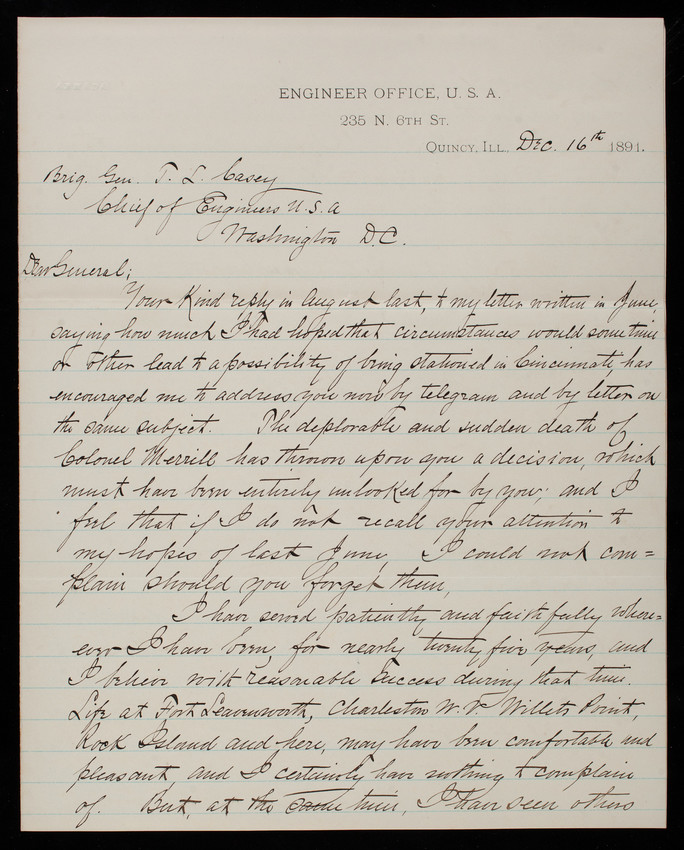 ENGINEER OFFICE, U. S. A.
235 N. 6TH ST.
QUINCY, ILL., Dec. 16th 1891.
Brig. Gen. T. L. Casey
Chief of Engineers U.S.A
Washington D.C.
Dear General;
Your kind reply in August last, to my letter written in June,
saying how much I had hoped that circumstances would some time
or other lead to a possibility of being stationed in Cincinnati, has
encouraged me to address you now by telegram and by letter on
the same subject. The deplorable and sudden death of
Colonel Merrill has thrown upon you a decision, which
must have been entirely unlooked for by you; and I
feel that if I do not recall your attention to
my hopes of last June, I could not com=
plain should you forget them,
I have served patiently and faithfully where=
ever I have been, for nearly twenty five years, and
I believe with reasonable success during that time.
Life at Fort Leavenworth, Charleston W. Va Willets Point,
Rock Island and here, may have been comfortable and
pleasant, and I certainly have nothing to complain
of. But, at the same time, I have seen others